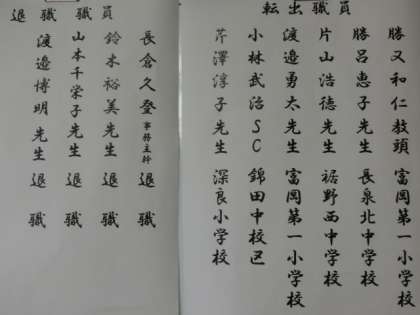 転出職員
勝又和仁教頭 富岡第一小学校
勝呂恵子先生 長泉北中学校
片山浩徳先生 裾野西中学校
渡邉勇太先生 富岡第一小学校
小林武治SC 錦田中校区
芹澤淳子先生 深良小学校
退職職員
長倉久登事務主幹 退職
鈴木裕美先生 退職
山本千栄子先生 退職
渡邉博明先生 退職